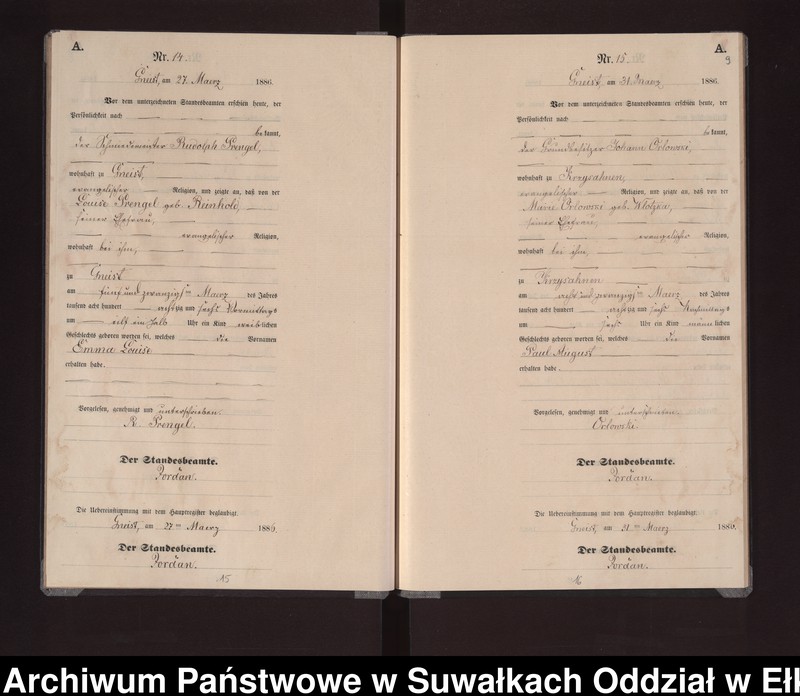 A.
Nr. 14.
Gneist, am 27. Maerz 1886.
Vor dem unterzeichneten Standesbeamten erschien heute, der
Persönlichkeit nach
bekannt,
der Rudolph Prengel,
wohnhaft zu Gneist,
evangelischer Religion, und zeigte an, daß von der
Louise Prengel geb. Reinhold,
seiner Ehefrau,
evangelischer Religion,
wohnhaft bei ihm,
zu Gneist
am fünf und zwanzigsten Maerz des Jahres
tausend acht hundert achtzig und sechs Vormittags
um elf ein halb Uhr ein Kind weiblichen
Geschlechts geboren worden sei, welches die Vornamen
Emma Louise
erhalten habe.
Vorgelesen, genehmigt und unterschrieben.
R. Prengel.
Der Standesbeamte.
Jordan.
Die Uebereinstimmung mit dem Hauptregister beglaubigt.
Gneist, am 27ten Maerz 1886.
Der Standesbeamte.
Jordan.
15
A.
9
Nr. 15.
Gneist, am 31. Maerz 1886.
Vor dem unterzeichneten Standesbeamten erschien heute, der
Persönlichkeit nach
bekannt,
der Grundbesitzer Johann Orlowski,
wohnhaft zu Krzysahnen,
evangelischer Religion, und zeigte an, daß von der
Marie Orlowski geb.
seiner Ehefrau,
evangelischer Religion,
wohnhaft bei ihm,
zu Krzysahnen
am acht und zwanzigsten Maerz des Jahres
tausend acht hundert achtzig und sechs Nachmittags
um sechs Uhr ein Kind männlichen
Geschlechts geboren worden sei, welches die Vornamen
Paul August
erhalten habe.
Vorgelesen, genehmigt und unterschrieben.
Orlowski.
Der Standesbeamte.
Jordan.
Die Uebereinstimmung mit dem Hauptregister beglaubigt.
Gneist, am 31ten Maerz 1886.
Der Standesbeamte.
Jordan.
16
Archiwum Państwowe w Suwałkach Oddział w Eł